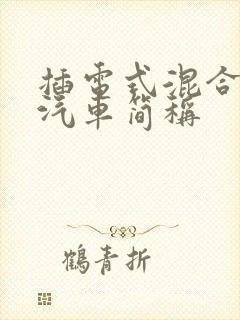 插電式混合
汽車简稱
鶴青折